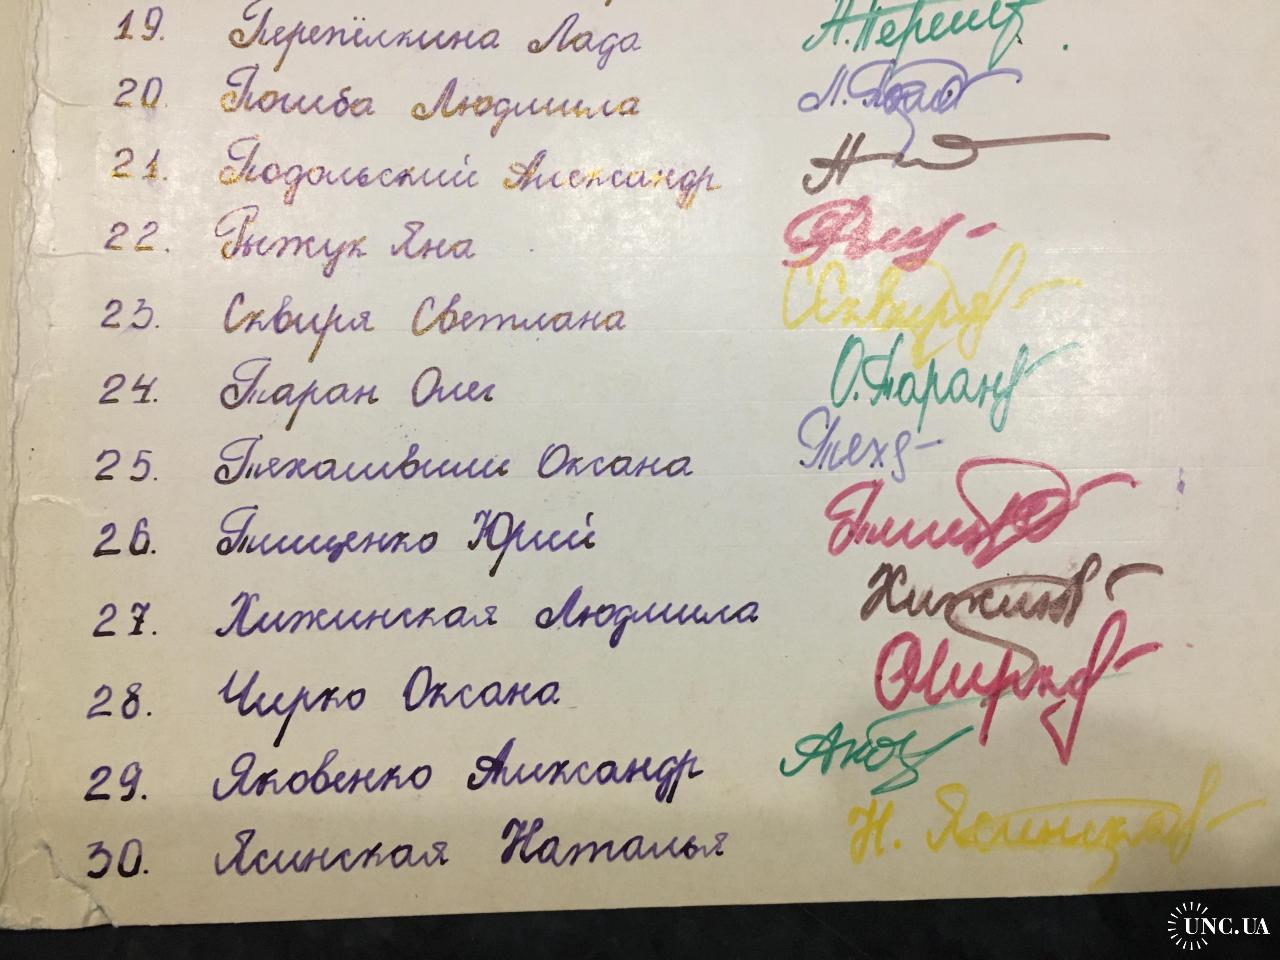 19. Перепёлкина Лада А.Переп
20. Погиба Людмила
21. Подольский Александр
22. Рыжук Яна
23. Сквиря Светлана Сквиря
24. Таран Олег О.Таран
25. Техашвили Оксана Тех
26. Тищенко Юрий
27. Хижинская Людмила Хижин
28. Чирко Оксана ОЧирко
29. Яковенко Александр
30. Ясинская Наталья Н. Ясинская
UNC.UA